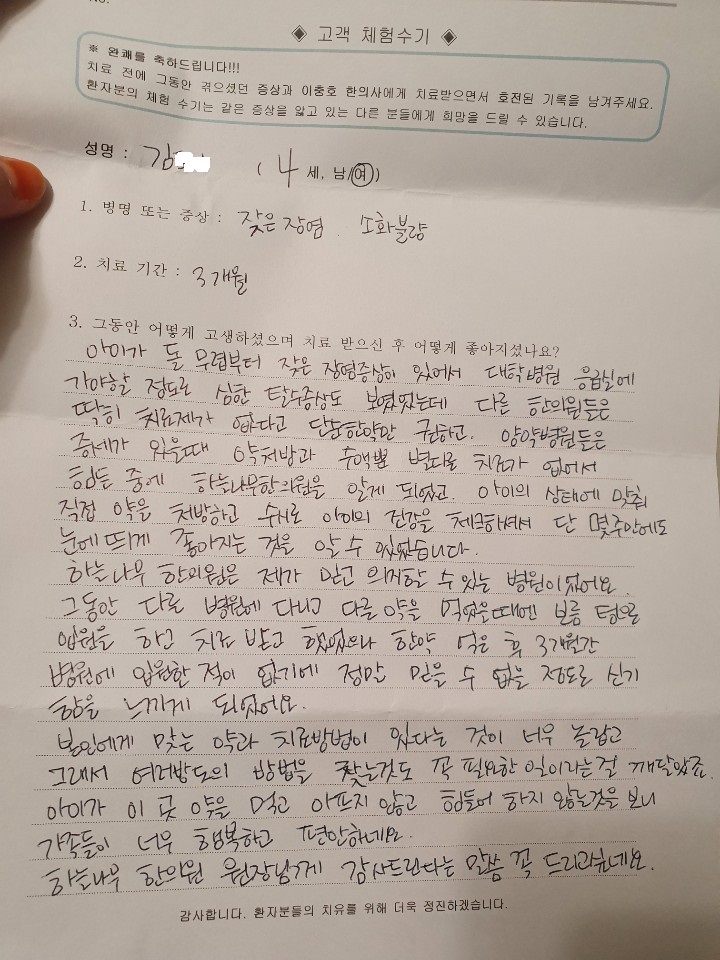 ◈ 고객 체험수기 ◈
※ 완쾌를 축하드립니다!!!
치료 전에 그동안 겪으셨던 증상과 이충호 한의사에게 치료받으면서 호전된 기록을 남겨주세요.
환자분의 체험 수기는 같은 증상을 앓고 있는 다른 분들에게 희망을 드릴 수 있습니다.
성명 : 김 ( 4 세, 남/여)
1. 병명 또는 증상 : 잦은 장염. 소화불량
2. 치료 기간 : 3개월
3. 그동안 어떻게 고생하셨으며 치료 받으신 후 어떻게 좋아지셨나요?
아이가 돌 무렵부터 잦은 장염증상이 있어서 대학병원 응급실에
가야할 정도로 심한 탈수증상도 보였었는데 다른 한의원들은
딱히 치료제가 없다고 단순한약만 권하고. 양약병원들은
증세가 있을때 약처방과 수액뿐 별다른 치료가 없어서
힘든 중에 하늘나무한의원을 알게 되었고. 아이의 상태에 맞춰
직접 약을 처방하고 수시로 아이의 건강을 체크하셔서 단 몇주만에도
눈에 띄게 좋아지는 것을 알 수 있었습니다.
하늘나무 한의원은 제가 믿고 의지할 수 있는 병원이었어요.
그동안 다른 병원에 다니고 다른 약을 먹었을때엔 보름 텀으로
입원을 하고 치료 받고 했었으나 한약 먹은 후 3개월간
병원에 입원한 적이 없기에 정말 믿을 수 없을 정도로 신기
함을 느끼게 되었어요.
본인에게 맞는 약과 치료방법이 있다는 것이 너무 놀랍고
그래서 여러방도의 방법을 찾는것도 꼭 필요한 일이라는걸 깨달았죠.
아이가 이 곳 약을 먹고 아프지 않고 힘들어 하지 않는것을 보니
가족들이 너무 행복하고 편안하네요.
하늘나무 한의원 원장님께 감사드린다는 말씀 꼭 드리고싶네요.
감사합니다. 환자분들의 치유를 위해 더욱 정진하겠습니다.